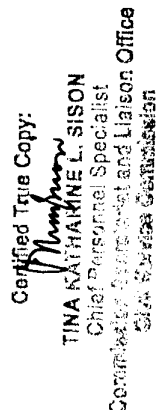 Certified True Copy:
TINA KATHARINE L. SISON
Chief Personnel Specialist
Commission Secretariat and Liaison Office
Civil Service Commission